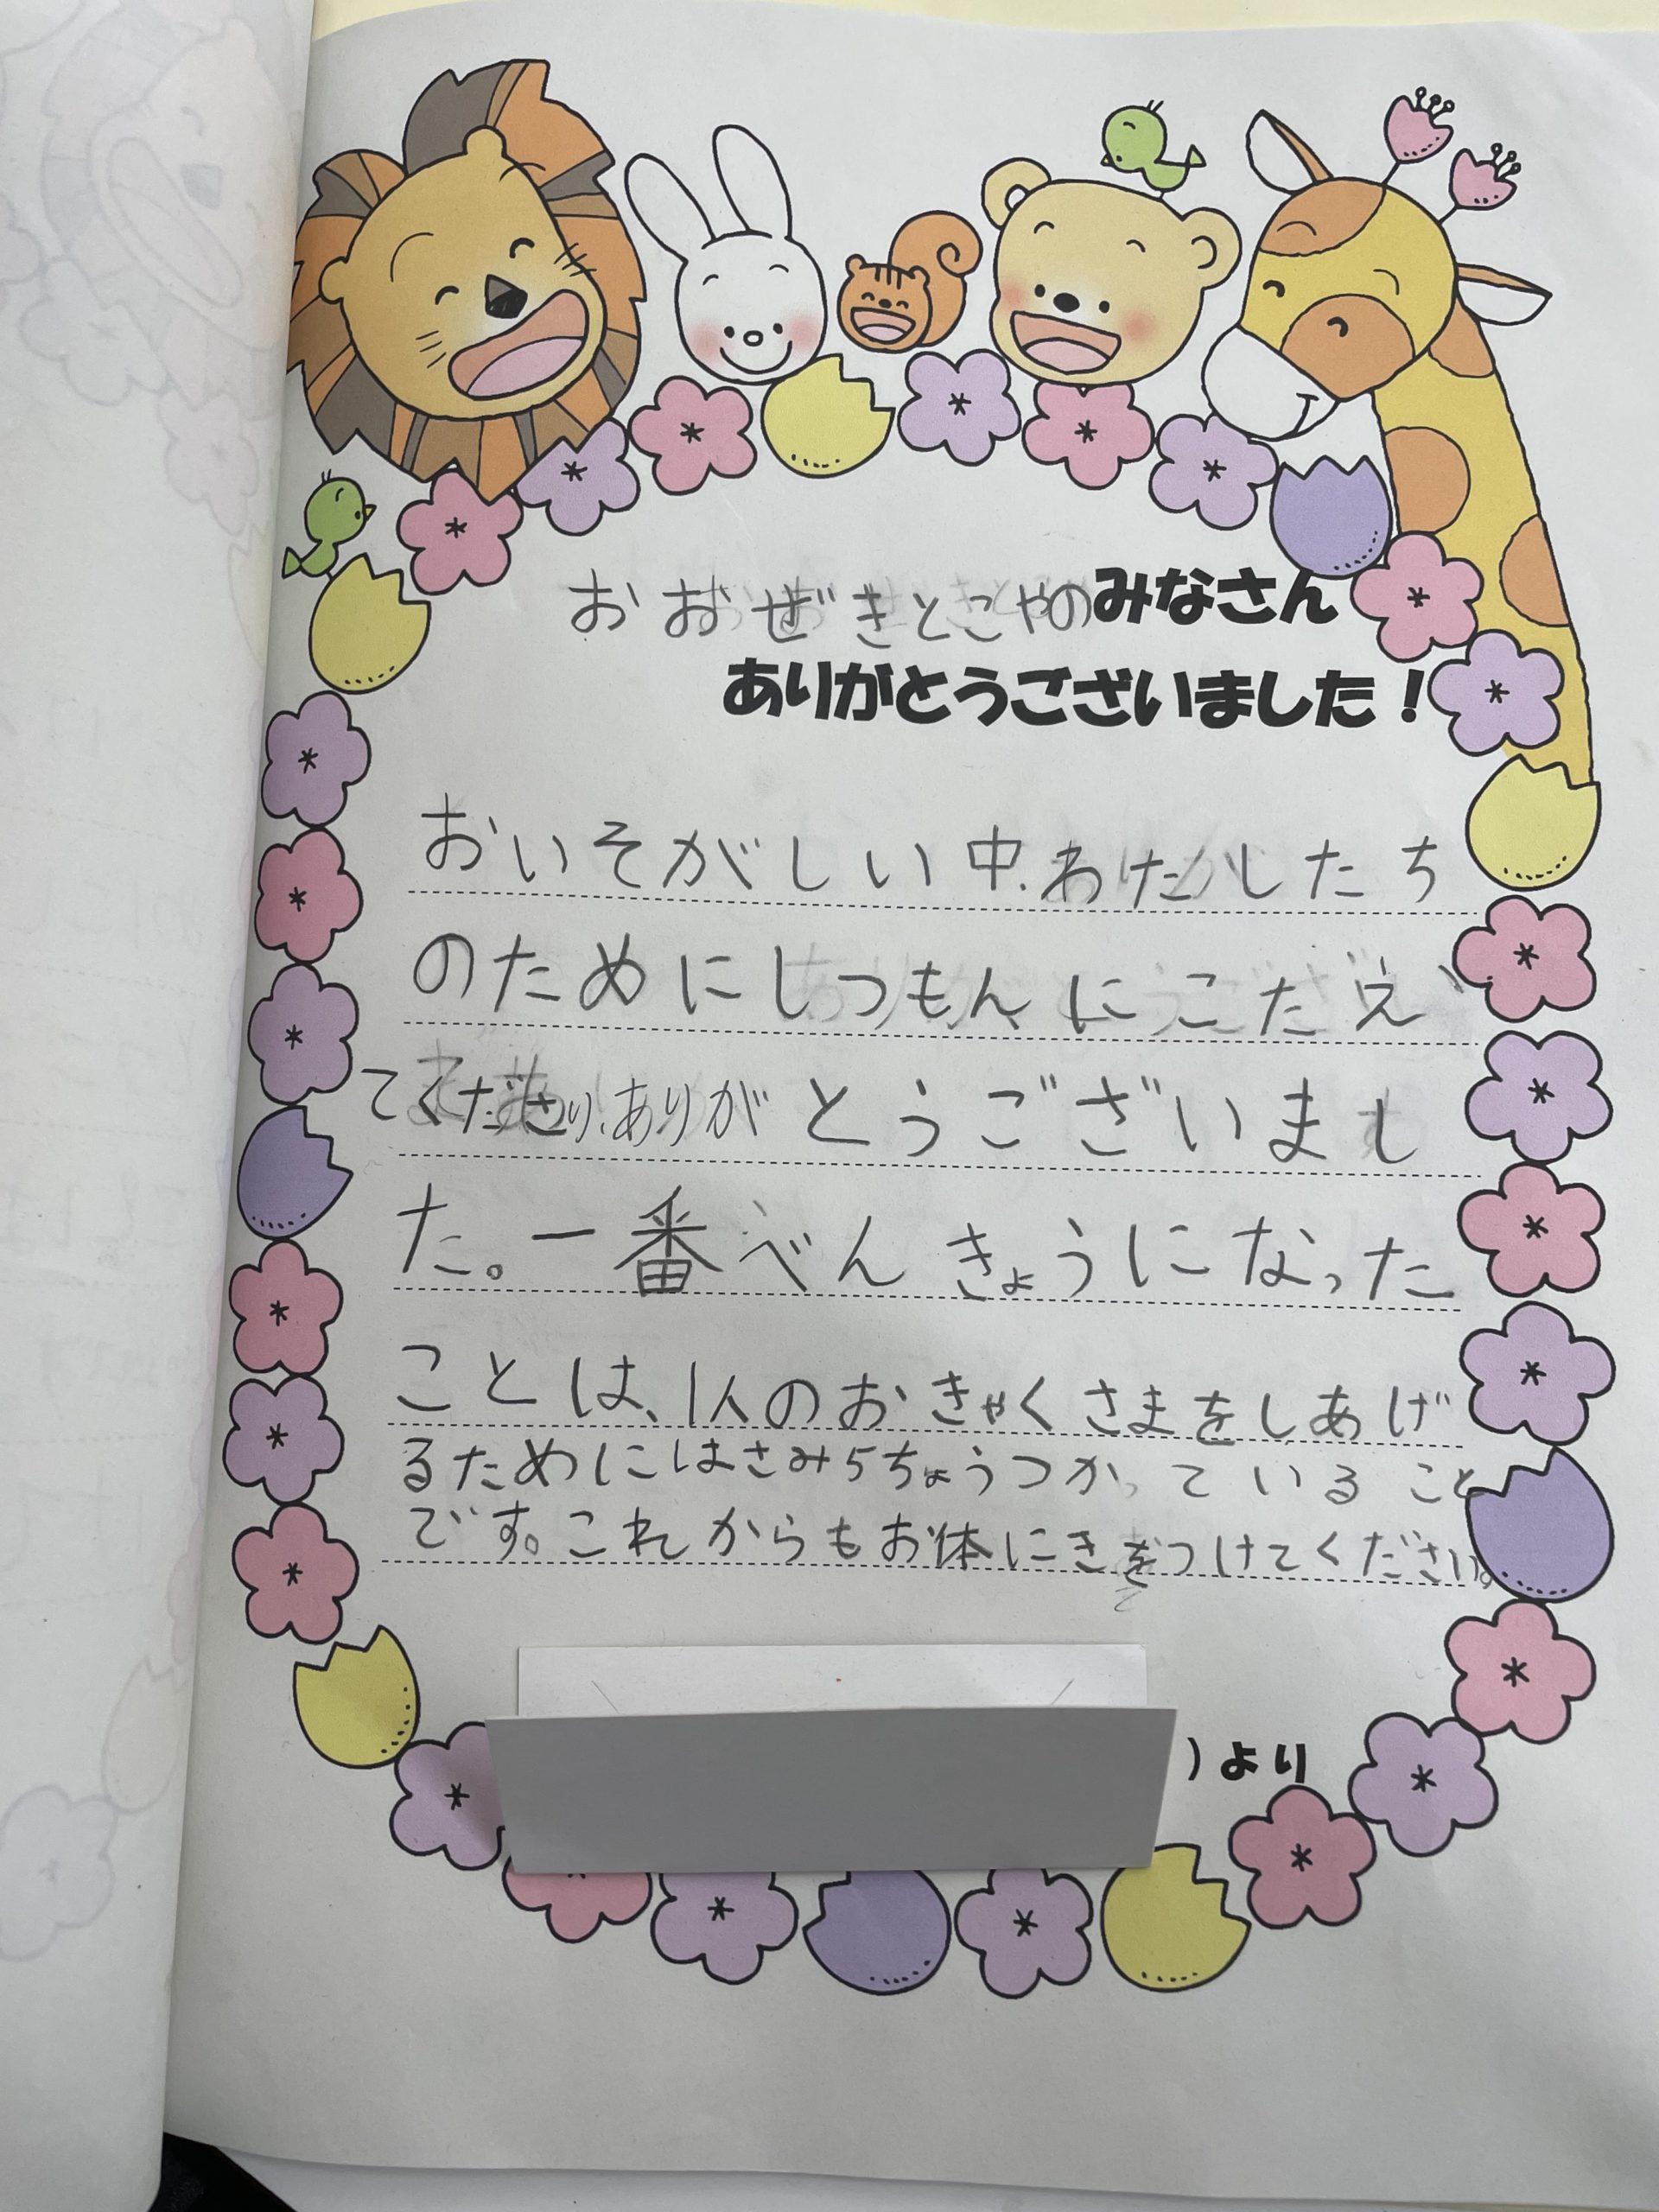 おおぜきとこやのみなさん
ありがとうございました！
おいそがしい中、わたしたち
のためにしつもんにこたえ
てくださり、ありがとうございまし
た。一番べんきょうになった
ことは、1人のおきゃくさまをしあげ
るためにはさみ5ちょうつかっていること
です。これからもお体にきをつけてください。
)より